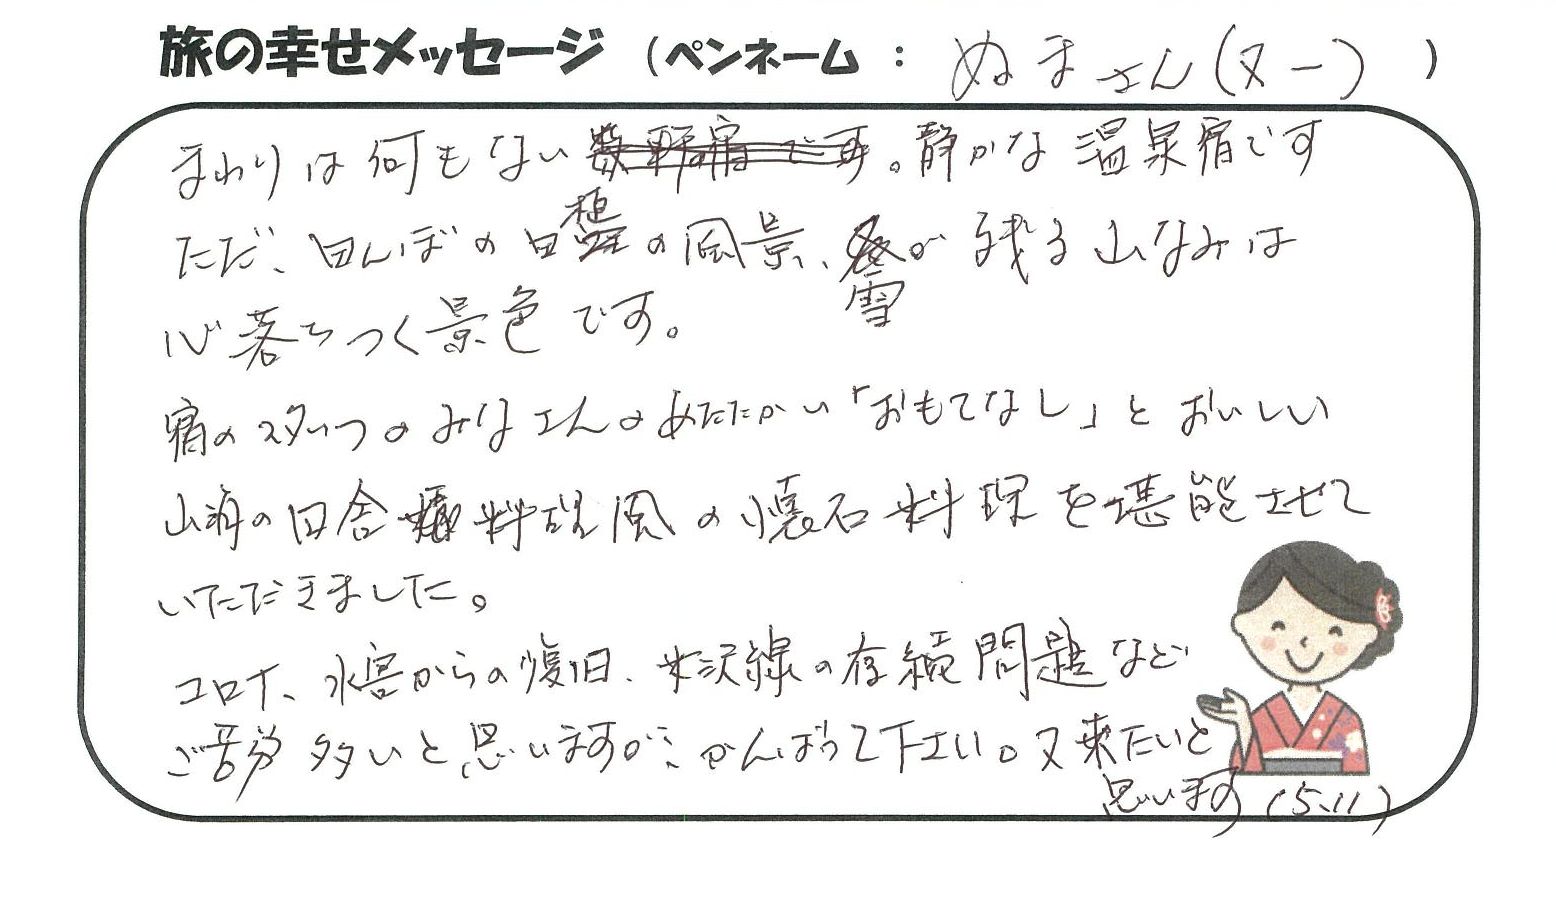 旅の幸せメッセージ (ペンネーム : ぬまさん(ヌー) )
まわりは何もない数軒の宿です。静かな温泉宿です
ただ、田んぼの田植の風景、雪が残る山なみは
心落ちつく景色です。
宿のスタッフのみなさんのあたたかい「おもてなし」とおいしい
山海の田舎料理風の懐石料理を堪能させて
いただきました。
コロナ、水害からの復旧、米沢線の存続問題など
ご苦労多いと思いますが、がんばって下さい。又来たいと
思います (5.11)